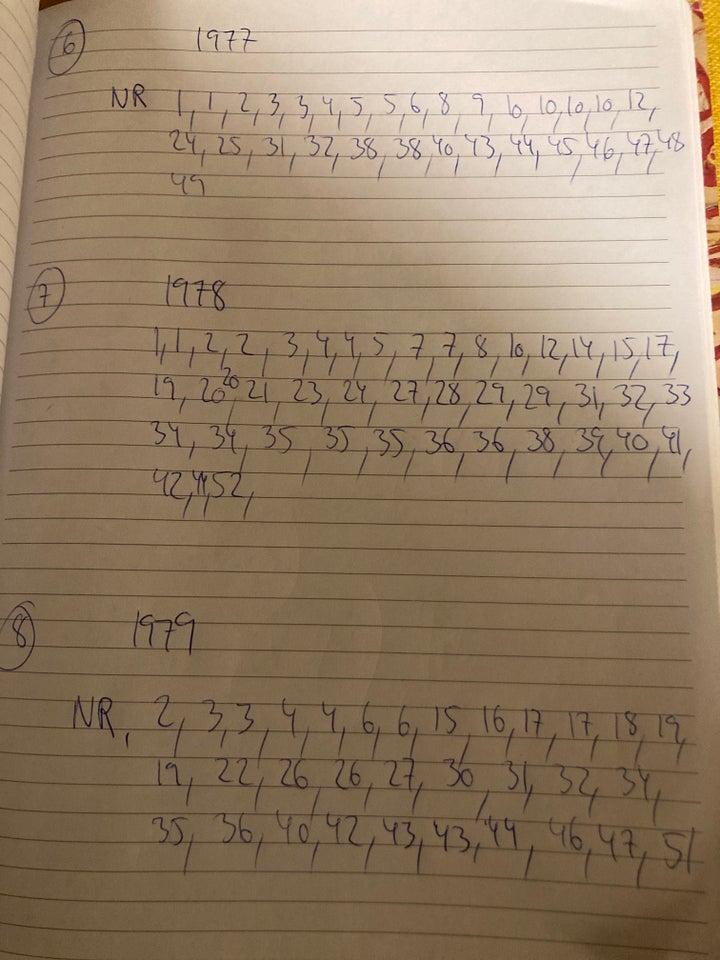 6 1977
NR 1, 1, 2, 3, 3, 4, 5, 5, 6, 8, 9, 10, 10, 10, 10, 12,
24, 25, 31, 32, 38, 38, 40, 43, 44, 45, 46, 47, 48
49
7 1978
1, 1, 2, 2, 3, 4, 4, 5, 7, 7, 8, 10, 12, 14, 15, 17,
19, 20 20, 21, 23, 24, 27, 28, 29, 29, 31, 32, 33
34, 34, 35, 35, 35, 36, 36, 38, 39, 40, 41,
42, 44, 52,
8 1979
NR, 2, 3, 3, 4, 4, 6, 6, 15, 16, 17, 17, 18, 19,
19, 22, 26, 26, 27, 30, 31, 32, 34,
35, 36, 40, 42, 43, 43, 44, 46, 47, 51